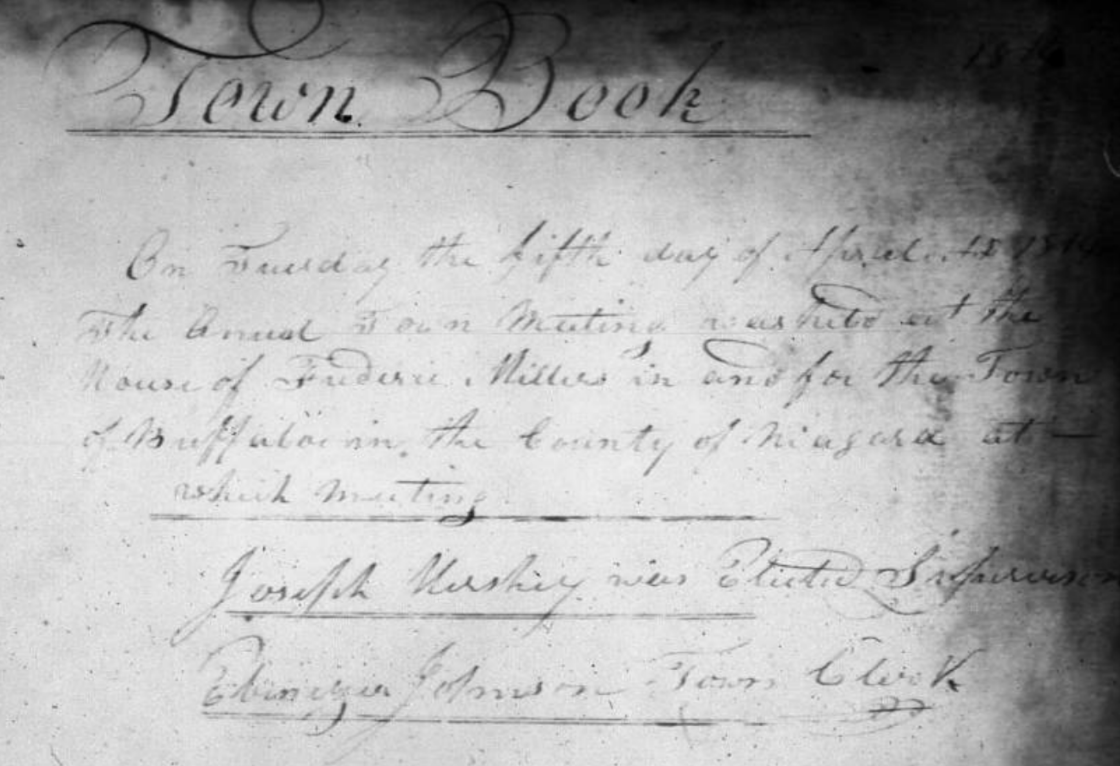 1814
Town Book
On Tuesday the fifth day of April AD 1814
The Annual Town Meeting was held at the
House of Frederic Millers in and for the Town
of Buffaloe in the County of Niagara at —
which meeting
Joseph Hershey was Elected Supervisor
Ebenezer Johnson Town Clerk